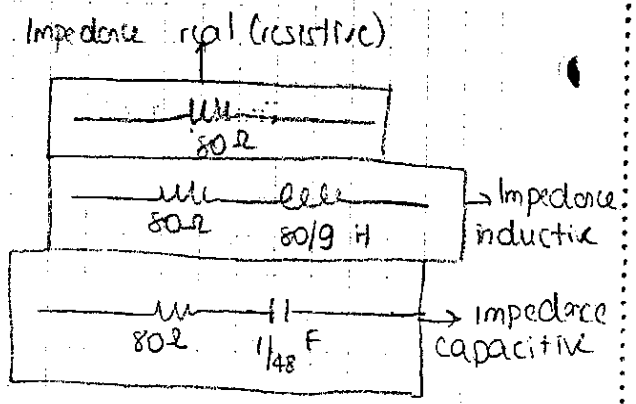 Impedance real (resistive)
80Ω
80Ω 80/9 H
Impedance
inductive
80Ω 1/48 F
impedance
capacitive